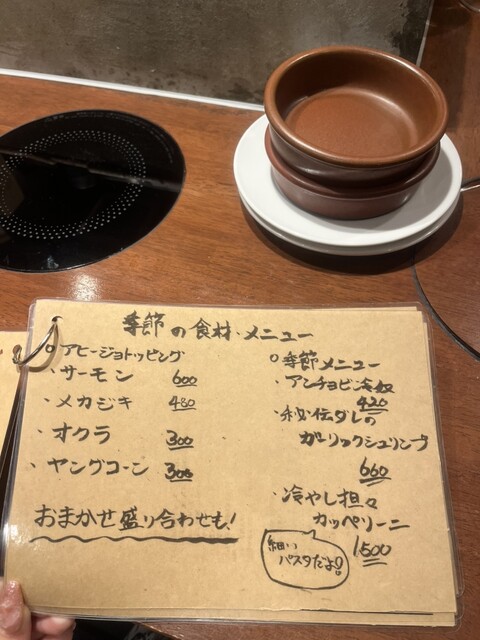 季節の食材・メニュー
○アヒージョトッピング
・サーモン 600
・メカジキ 480
・オクラ 300
・ヤングコーン 300
おまかせ盛り合わせも!
○季節メニュー
・アンチョビ冷奴
420
・秘伝ダレの
ガーリックシュリンプ
660
・冷やし担々
カッペリーニ
1,500
細い
パスタだよ!